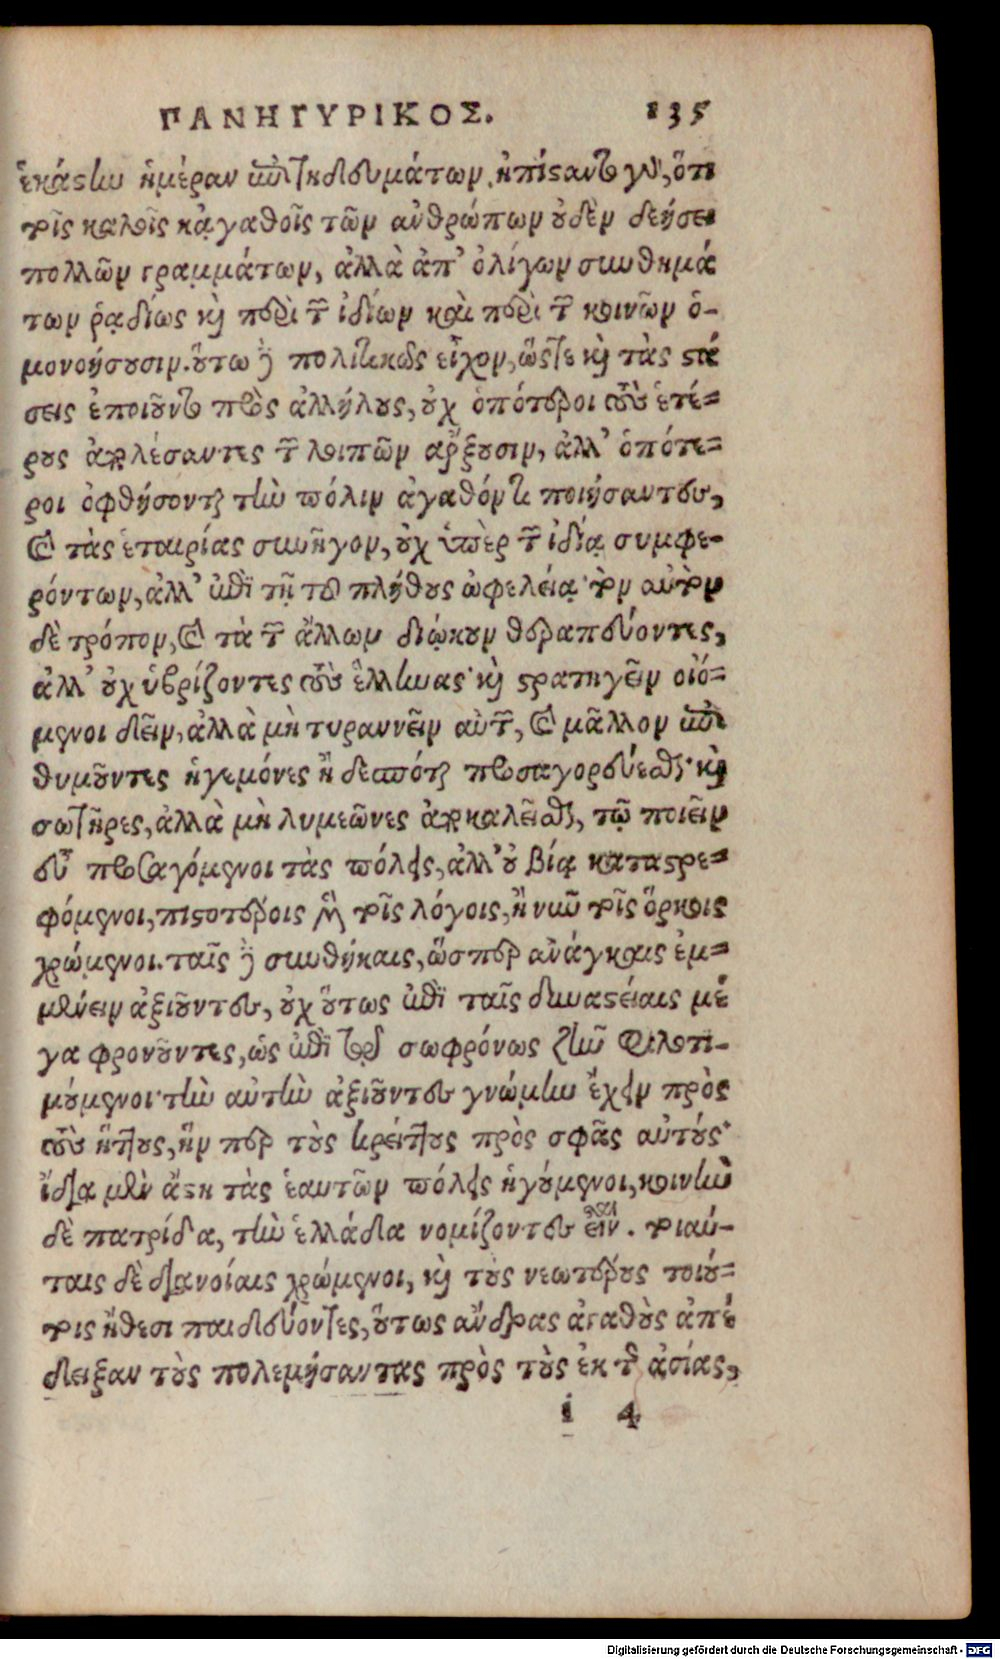 ΠΑΝΗΓΥΡΙΚΟΣ. 135
ἑκάστην ἡμέραν ἐπιτηδευμάτων. ἠπίσταντο γὰρ, ὅτι
τοῖς καλοῖς κἀγαθοῖς τῶν ἀνθρώπων οὐδὲν δεήσει
πολλῶν γραμμάτων, ἀλλὰ ἀπ' ὀλίγων συνθημά
των ῥᾳδίως καὶ περὶ τῶν ἰδίων καὶ περὶ τῶν κοινῶν ὁ-
μονοήσουσιν. οὕτω δὲ πολιτικῶς εἶχον, ὥστε καὶ τὰς στά
σεις ἐποιοῦντο πρὸς ἀλλήλους, οὐχ ὁπότεροι τοὺς ἑτέ-
ρους ἀπολέσαντες τῶν λοιπῶν ἄρξουσιν, ἀλλ' ὁπότε-
ροι ὀφθήσονται τὴν πόλιν ἀγαθόν τι ποιήσαντες,
καὶ τὰς ἑταιρίας συνῆγον, οὐχ ὑπὲρ τῶν ἰδίᾳ συμφε-
ρόντων, ἀλλ' ἐπὶ τῇ τοῦ πλήθους ὠφελείᾳ· τὸν αὐτὸν
δὲ τρόπον, καὶ τὰ τῶν ἄλλων διῴκουν θεραπεύοντες,
ἀλλ' οὐχ ὑβρίζοντες τοὺς ἕλληνας· καὶ στρατηγεῖν οἰό-
μενοι δεῖν, ἀλλὰ μὴ τυραννεῖν αὐτῶν, καὶ μᾶλλον ἐπι
θυμοῦντες ἡγεμόνες ἢ δεσπόται προσαγορεύεσθαι· καὶ
σωτῆρες, ἀλλὰ μὴ λυμεῶνες ἀποκαλεῖσθαι, τῷ ποιεῖν
εὖ προσαγόμενοι τὰς πόλεις, ἀλλ' οὐ βίᾳ καταστρε-
φόμενοι, πιστοτέροις μὲν τοῖς λόγοις, ἢ νῦν τοῖς ὅρκοις
χρώμενοι. ταῖς δὲ συνθήκαις, ὥσπερ ἀνάγκαις ἐμ-
μένειν ἀξιοῦντες, οὐχ οὕτως ἐπὶ ταῖς δυναστείαις μέ
γα φρονοῦντες, ὡς ἐπὶ τῷ σωφρόνως ζῆν φιλοτι-
μούμενοι· τὴν αὐτὴν ἀξιοῦντες γνώμην ἔχειν πρὸς
τοὺς ἥττους, ἥν περ τοὺς κρείττους πρὸς σφᾶς αὐτούς·
ἴδια μὲν ἄστη τὰς ἑαυτῶν πόλεις ἡγούμενοι, κοινὴν
δὲ πατρίδα, τὴν ἑλλάδα νομίζοντες εἶναι. τοιαύ-
ταις δὲ διανοίαις χρώμενοι, καὶ τοὺς νεωτέρους τοιού-
τοις ἤθεσι παιδεύοντες, οὕτως ἄνδρας ἀγαθοὺς ἀπέ
δειξαν τοὺς πολεμήσαντας πρὸς τοὺς ἐκ τῆς ἀσίας,
i 4
Digitalisierung gefördert durch die Deutsche Forschungsgemeinschaft - DFG